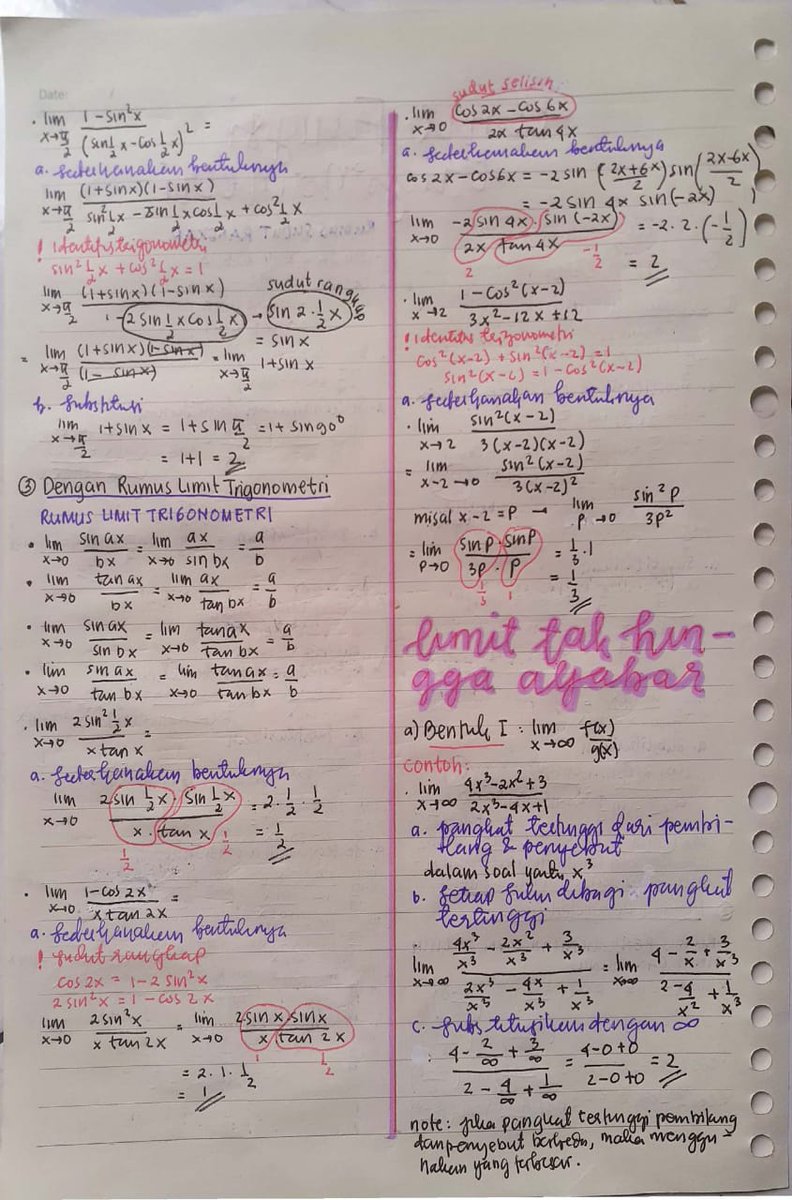 Date:
· lim x→π/2 (1-sin²x)/(sin½x-cos½x)² =
a. sederhanakan bentuknya
lim x→π/2 (1+sinx)(1-sinx)/(sin²½x-2sin½xcos½x+cos²½x)
! Identitas trigonometri
sin²½x+cos²½x=1
lim x→π/2 (1+sinx)(1-sinx)/(1-2sin½xcos½x) → sin2·½x
sudut rangkap
= sinx
= lim x→π/2 (1+sinx)(1-sinx)/(1-sinx) = lim x→π/2 1+sinx
b. Substitusi
lim x→π/2 1+sinx = 1+sin π/2 = 1+sin90°
= 1+1 = 2
③ Dengan Rumus Limit Trigonometri
RUMUS LIMIT TRIGONOMETRI
· lim x→0 sin ax/bx = lim x→0 ax/sin bx = a/b
· lim x→0 tan ax/bx = lim x→0 ax/tan bx = a/b
· lim x→0 sin ax/sin bx = lim x→0 tan ax/tan bx = a/b
· lim x→0 sin ax/tan bx = lim x→0 tan ax/tan bx = a/b
· lim x→0 2 sin²½x/x tan x =
a. sederhanakan bentuknya
lim x→0 2 sin½x · sin½x/x · tan x = 2·½·½
½ ½ = ½
· lim x→0 1-cos 2x/x tan 2x =
a. sederhanakan bentuknya
! sudut rangkap
cos 2x = 1-2 sin²x
2 sin²x = 1-cos 2x
lim x→0 2sin²x/x tan 2x = lim x→0 2 sin x sin x/x tan 2x
1 ½
= 2·1·½
= 1
sudut selisih
· lim x→0 cos 2x - cos 6x/2x tan 4x
a. sederhanakan bentuknya
cos 2x - cos 6x = -2 sin (2x+6x/2) sin (2x-6x/2)
= -2 sin 4x sin(-2x)
lim x→0 -2 sin 4x · sin(-2x)/2x tan 4x = -2·2·(-½)
2 -½ = 2
· lim x→2 1-cos²(x-2)/3x²-12x+12
! Identitas trigonometri
cos²(x-2)+sin²(x-2)=1
sin²(x-2)=1-cos²(x-2)
a. sederhanakan bentuknya
· lim x→2 sin²(x-2)/3(x-2)(x-2)
= lim x-2→0 sin²(x-2)/3(x-2)²
misal x-2=P → lim P→0 sin²P/3P²
= lim P→0 sinP · sinP/3P · P = ⅓·1
⅓ 1 = ⅓
limit tak hin-
gga aljabar
a) Bentuk I : lim x→∞ f(x)/g(x)
contoh:
· lim x→∞ 4x³-2x²+3/2x³-4x+1
a. pangkat tertinggi dari pembi-
lang & penyebut
dalam soal yaitu x³
b. setiap suku dibagi pangkat
tertinggi
lim x→∞ (4x³/x³ - 2x²/x³ + 3/x³)/(2x³/x³ - 4x/x³ + 1/x³) = lim x→∞ (4 - 2/x + 3/x³)/(2 - 4/x² + 1/x³)
c. Substitusikan dengan ∞
(4 - 2/∞ + 3/∞)/(2 - 4/∞ + 1/∞) = 4-0+0/2-0+0 = 2
note: jika pangkat tertinggi pembilang
dan penyebut berbeda, maka menggu-
nakan yang terbesar.